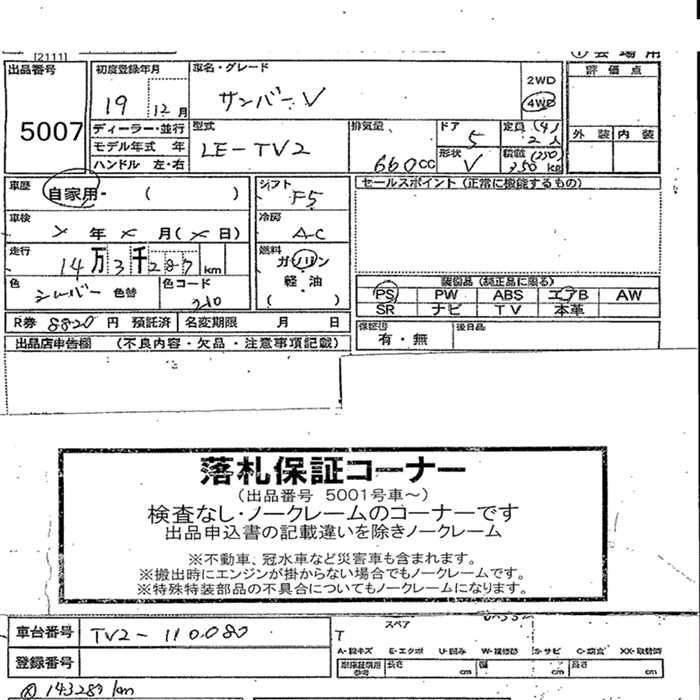 [2111]
① 会場用
出品番号 5007
初度登録年月 19 12月
車名・グレード サンバーV
2WD
4WD
評価点
外装 内装
ディーラー・並行
モデル年式 年
ハンドル 左・右
型式 LE-TV2
排気量 660cc
ドア 5
形状 V
定員 (4)人 2人
積載 (250) 350kg
車歴 自家用・( )
車検 × 年 × 月(× 日)
走行 14万3千287km
色 シルバー 色替
色コード 210
シフト F5
冷房 A-C
燃料 ガソリン
軽・油
( )
セールスポイント (正常に機能するもの)
装備品 (純正品に限る)
PS PW ABS エアB AW
SR ナビ TV 本革
R券 8820円 預託済 名変期限 月 日
保証書 有・無
後日品
出品店申告欄 (不良内容・欠品・注意事項記載)
落札保証コーナー
(出品番号 5001号車~)
検査なし・ノークレームのコーナーです
出品申込書の記載違いを除きノークレーム
※不動車、冠水車など災害車も含まれます。
※搬出時にエンジンが掛からない場合でもノークレームです。
※特殊特装部品の不具合についてもノークレームになります。
車台番号 TV2-110080
登録番号
スペア
T
A-線キズ E-エクボ U-凹み W-補修跡 S-サビ C-腐食 XX-取替済
長さ cm 幅 cm 高さ cm
143287km